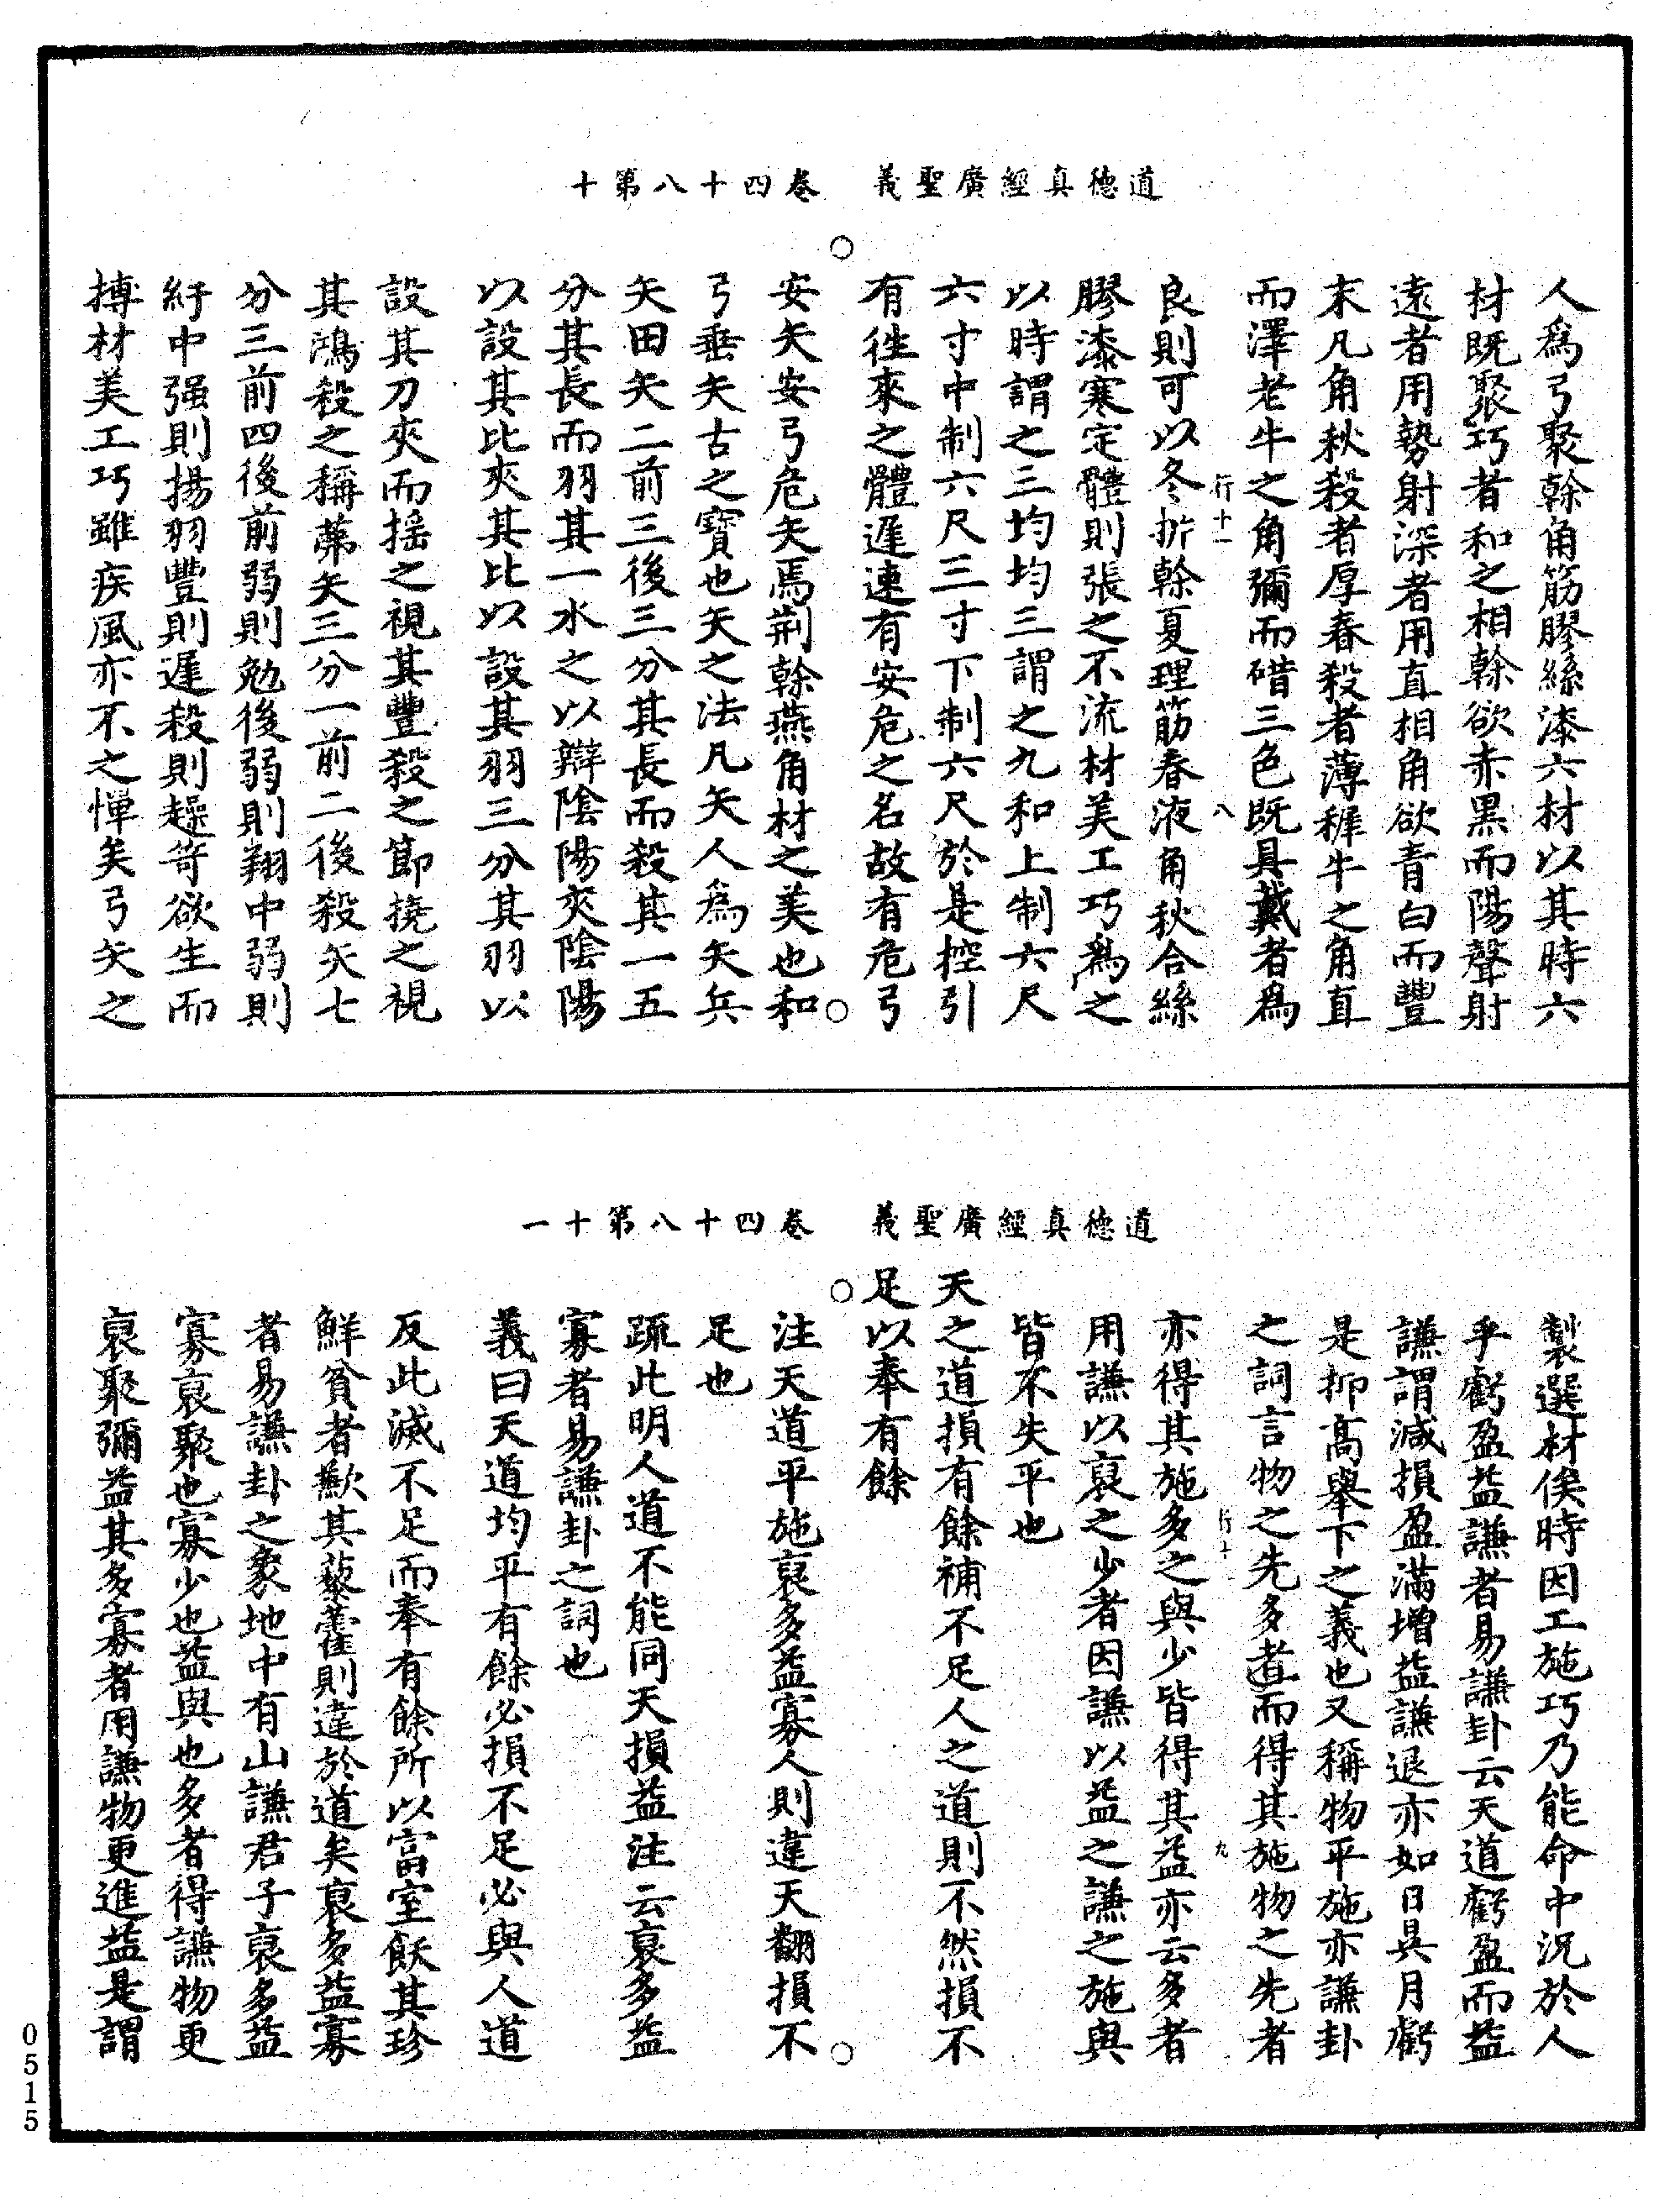 道德真經廣聖義　卷四十八第十
人爲弓聚幹角筋膠絲漆六材以其時六
材既聚巧者和之相幹欲赤黑而陽聲射
遠者用勢射深者用直相角欲青白而豐
末凡角秋殺者厚春殺者薄稺牛之角直
而澤老牛之角彌而䃰三色既具戴者爲
行十一　八
良則可以冬折幹夏理筋春液角秋合絲
膠漆寒定體則張之不流材美工巧爲之
以時謂之三均均三謂之九和上制六尺
六寸中制六尺三寸下制六尺於是控引
有往來之體遲速有安危之名故有危弓
安矢安弓危矢焉荆幹燕角材之美也和
弓垂矢古之寶也矢之法凡矢人爲矢兵
矢田矢二前三後三分其長而殺其一五
分其長而羽其一水之以辯陰陽夾陰陽
以設其比夾其比以設其羽三分其羽以
設其刀夾而揺之視其豐殺之節撓之視
其鴻殺之稱茀矢三分一前二後殺矢七
分三前四後前弱則勉後弱則翔中弱則
紆中强則揚羽豐則遲殺則趮笴欲生而
摶材美工巧雖疾風亦不之憚矣弓矢之
道德真經廣聖義　卷四十八第十一
製選材俟時因工施巧乃能命中況於人
乎虧盈益謙者易謙卦云天道虧盈而益
謙謂減損盈滿增益謙退亦如日昃月虧
是抑高舉下之義也又稱物平施亦謙卦
之詞言物之先多者而得其施物之先者
行十　九
亦得其施多之與少皆得其益亦云多者
用謙以裒之少者因謙以益之謙之施與
皆不失平也
天之道損有餘補不足人之道則不然損不
足以奉有餘
注天道平施裒多益寡人則違天翻損不
足也
疏此明人道不能同天損益注云裒多益
寡者易謙卦之詞也
義曰天道均平有餘必損不足必與人道
反此減不足而奉有餘所以富室飫其珍
鮮貧者歉其藜藿則違於道矣裒多益寡
者易謙卦之象地中有山謙君子裒多益
寡裒聚也寡少也益與也多者得謙物更
裒聚彌益其多寡者用謙物更進益是謂
0515